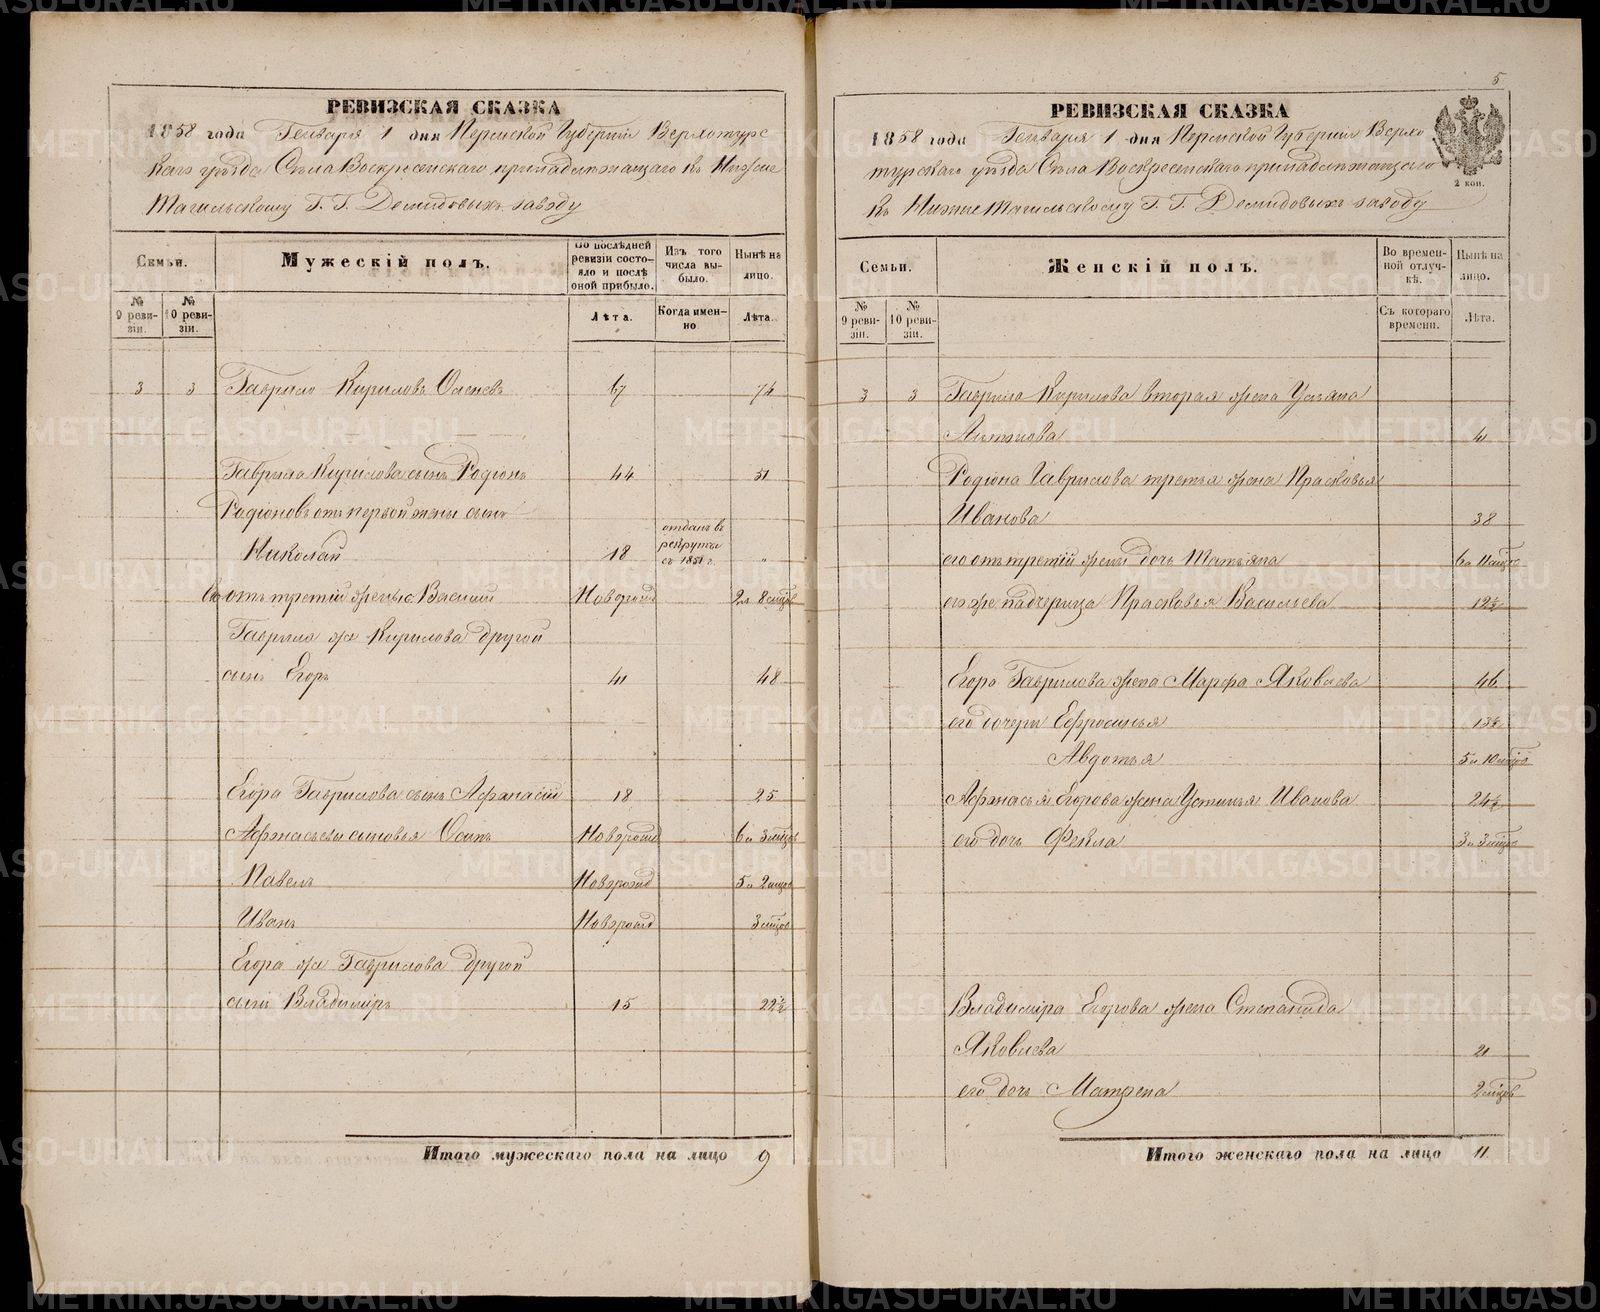 РЕВИЗСКАЯ СКАЗКА
1858 года Генваря 1 дня Пермской Губернiи Верхотурс
каго уѣзда Села Воскресенскаго принадлежащаго къ Нижне
Тагильскому Г. Г. Демидовыхъ заводу
Семьи.
Мужескiй полъ.
По послѣдней ревизiи состояло и послѣ оной прибыло.
Изъ того числа выбыло.
Нынѣ на лицо.
№ 9 ревизiи.
№ 10 ревизiи.
Лѣта.
Когда именно
Лѣта.
3 3 Гаврило Кириловъ 67 74
Гаврила Кирилова сынъ Родiонъ 44 51
Родiоновъ отъ первой жены сынъ
Николай 18 отданъ въ рекруты съ 1851 г. "
отъ третiй жены Василiй Новорожд 2 и 8 мцовъ
Гаврила же Кирилова другой
сынъ Егоръ 41 48
Егора Гаврилова сынъ Афанасiй 18 25
Афанасьевы сыновья Осипъ Новорожд 6 и 3 мцовъ
Павелъ Новорожд 5 и 2 мцовъ
Иванъ Новорожд 3 мцов
Егора же Гаврилова другой
сынъ Владимiръ 15 22½
Итого мужескаго пола на лицо 9
5
РЕВИЗСКАЯ СКАЗКА
1858 года Генваря 1 дня Пермской Губернiи Верхо
турскаго уѣзда Села Воскресенскаго принадлежащаго
къ Нижне Тагильскому Г. Г. Демидовыхъ заводу
2 коп.
Семьи.
Женскiй полъ.
Во временной отлучкѣ.
Нынѣ на лицо.
№ 9 ревизiи.
№ 10 ревизiи.
Съ котораго времени.
Лѣта.
3 3 Гаврила Кирилова вторая жена
41
Родiона Гаврилова третья жена Прасковья
Иванова 38
его отъ третiй жены дочь Татьяна 6 и 11 мцов
его же падчерица Прасковья Васильева 12½
Егора Гаврилова жена Марфа Яковлева 46
его дочери Ефросинья 13½
Авдотья 5 и 10 мцов
Афанасья Егорова жена Устинья Иванова 24½
его дочь Фекла 3 и 3 мцов
Владимiра Егорова жена Степанида
Яковлева 21
его дочь Матрена 2 мцовъ
Итого женскаго пола на лицо 11
METRIKI.GASO-URAL.RU